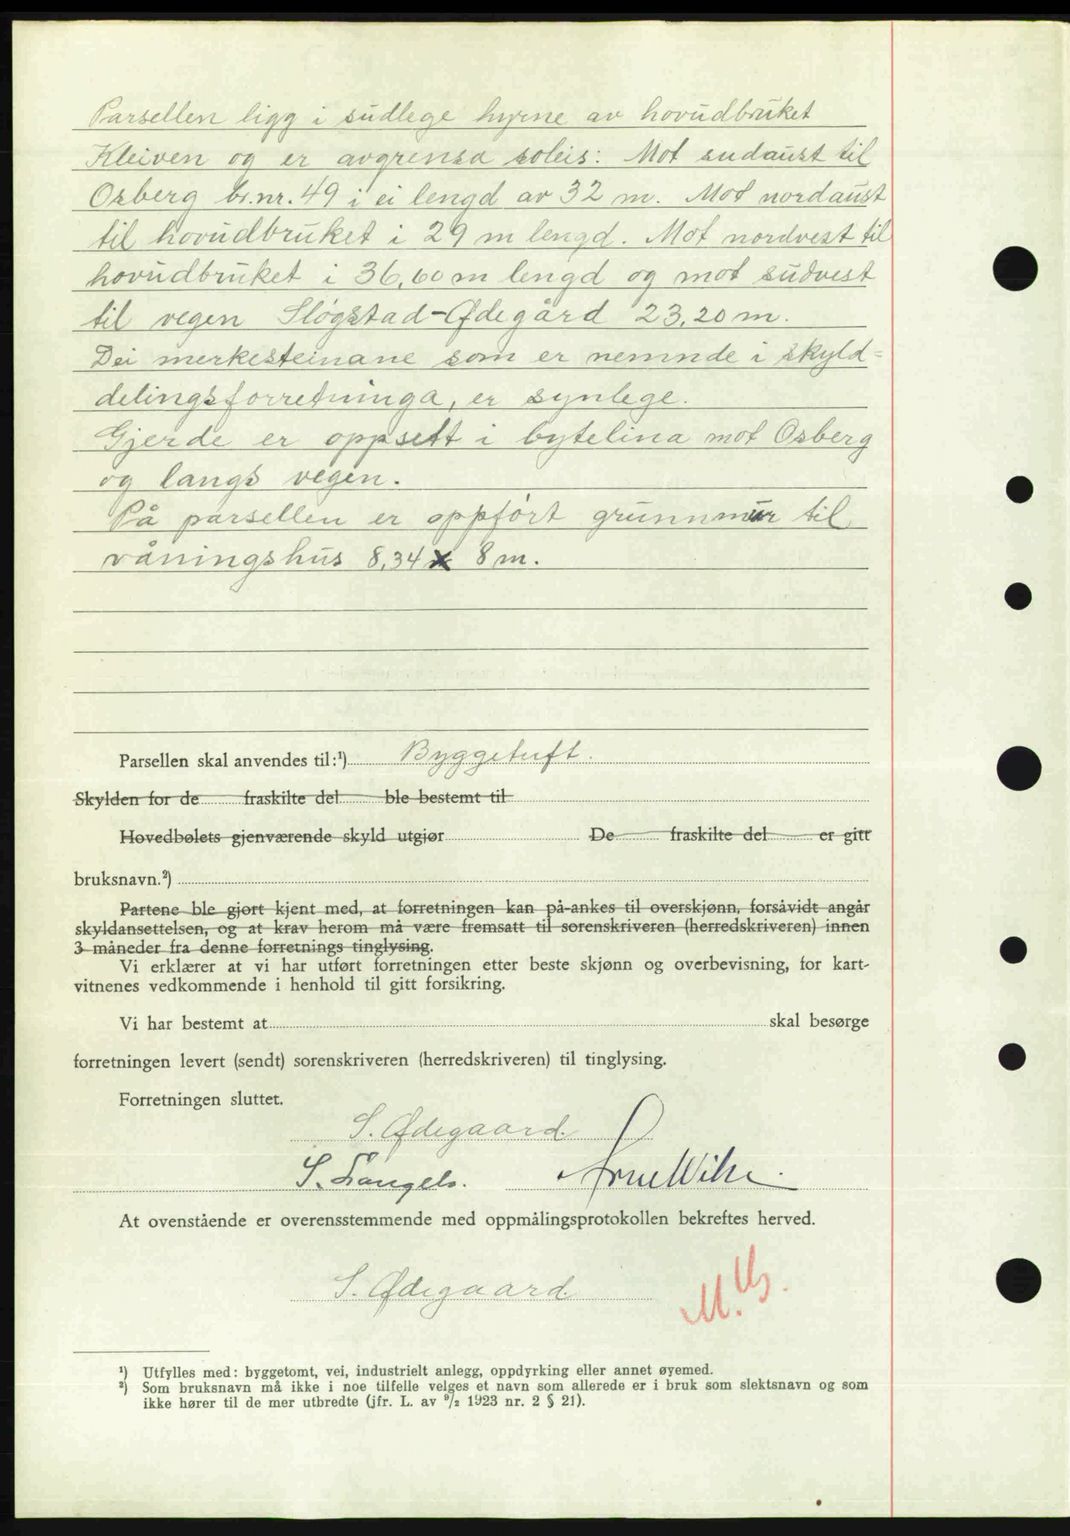 Parsellen ligg i sudlege hyrne av hovudbruket
Kleiven og er avgrensa soleis: Mot sudaust til
Osberg br.nr. 49 i ei lengd av 32 m. Mot nordaust
til hovudbruket i 29 m lengd. Mot nordvest til
hovudbruket i 36,60 m lengd og mot sudvest
til vegen Sløgstad-Ødegård 23,20 m.
Dei merkesteinane som er nemnde i skyld=
delingsforretninga, er synlege.
Gjerde er oppsett i bytelina mot Osberg
og langs vegen.
På parsellen er oppført grunnmur til
våningshus 8,34 x 8 m.
Parsellen skal anvendes til:¹) Byggetuft.
Skylden for de fraskilte del ble bestemt til
Hovedbølets gjenværende skyld utgjør De fraskilte del er gitt
bruksnavn.²)
Partene ble gjort kjent med, at forretningen kan på-ankes til overskjønn, forsåvidt angår
skyldansettelsen, og at krav herom må være fremsatt til sorenskriveren (herredskriveren) innen
3 måneder fra denne forretnings tinglysing.
Vi erklærer at vi har utført forretningen etter beste skjønn og overbevisning, for kart-
vitnenes vedkommende i henhold til gitt forsikring.
Vi har bestemt at skal besørge
forretningen levert (sendt) sorenskriveren (herredskriveren) til tinglysing.
Forretningen sluttet.
S. Ødegaard.
S. Langelo. Arne Wike.
At ovenstående er overensstemmende med oppmålingsprotokollen bekreftes herved.
S. Ødegaard.
¹) Utfylles med: byggetomt, vei, industrielt anlegg, oppdyrking eller annet øyemed.
²) Som bruksnavn må ikke i noe tilfelle velges et navn som allerede er i bruk som slektsnavn og som
ikke hører til de mer utbredte (jfr. L. av ⁹/₂ 1923 nr. 2 § 21).